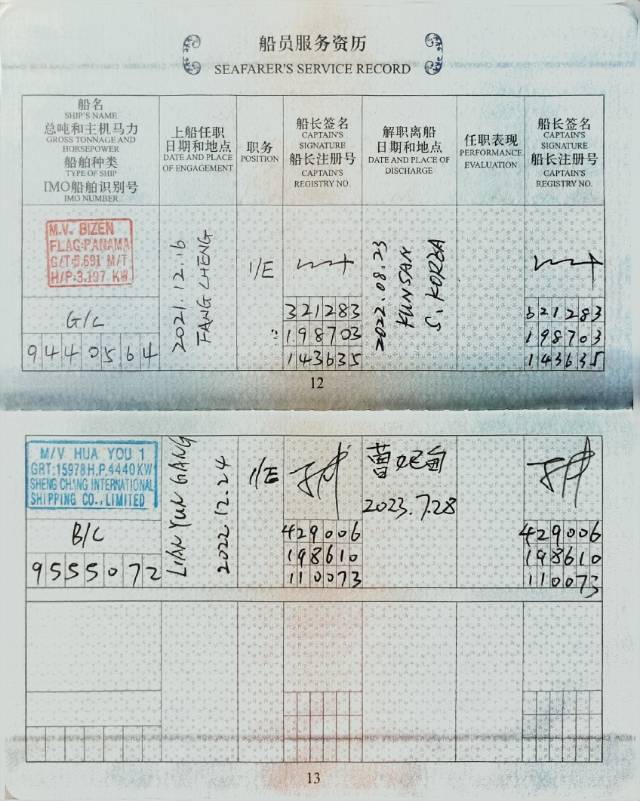 船员服务资历
SEAFARER'S SERVICE RECORD
船名
SHIP'S NAME
总吨和主机马力
GROSS TONNAGE AND
HORSEPOWER
船舶种类
TYPE OF SHIP
IMO船舶识别号
IMO NUMBER
上船任职
日期和地点
DATE AND PLACE
OF ENGAGEMENT
职务
POSITION
船长签名
CAPTAIN'S
SIGNATURE
船长注册号
CAPTAIN'S
REGISTRY NO.
解职离船
日期和地点
DATE AND PLACE OF
DISCHARGE
任职表现
PERFORMANCE
EVALUATION
船长签名
CAPTAIN'S
SIGNATURE
船长注册号
CAPTAIN'S
REGISTRY NO.
M.V. BIZEN
FLAG:PANAMA
G/T:5.691 M/T
H/P:3.197 KW
G/C
9440564
2021.12.16
FANG CHENG
1/E
321283
198703
143635
2022.08.23
KUNSAN
S. KOREA
321283
198703
143635
12
M/V HUA YOU 1
GRT:15978 H.P.4440KW
SHENG CHANG INTERNATIONAL
SHIPPING CO.,LIMITED
B/C
9555072
LIAN YUN GANG
2022.12.24
1/E
429006
198610
110073
曹妃甸
2023.7.28
429006
198610
110073
13